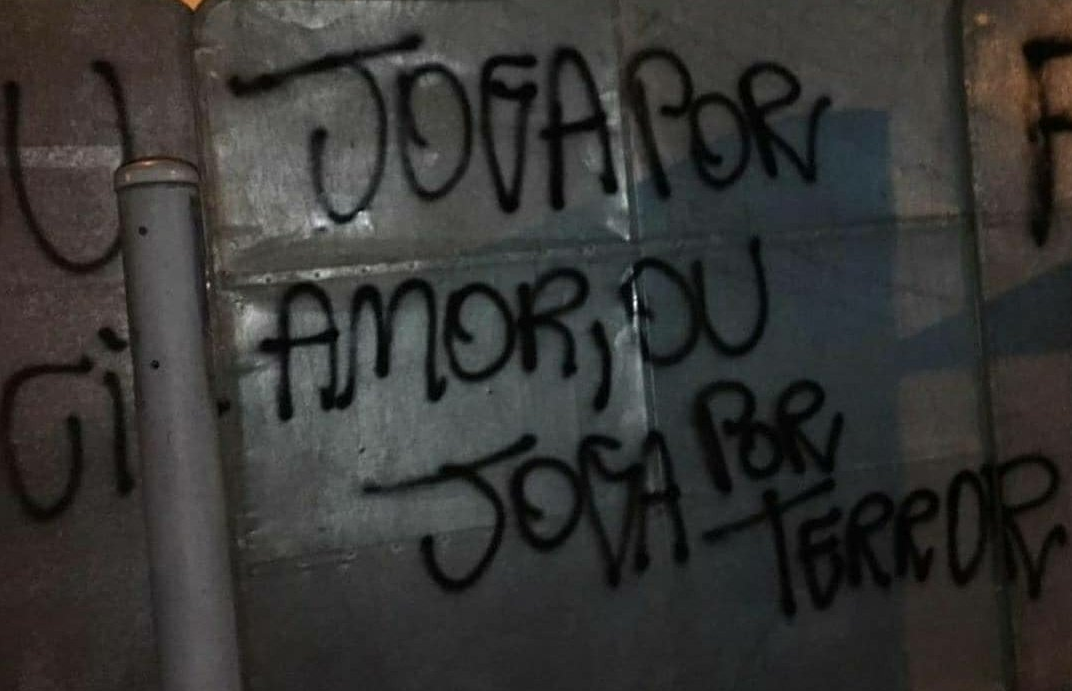 JOGA POR
AMOR, OU
JOGA POR
TERROR